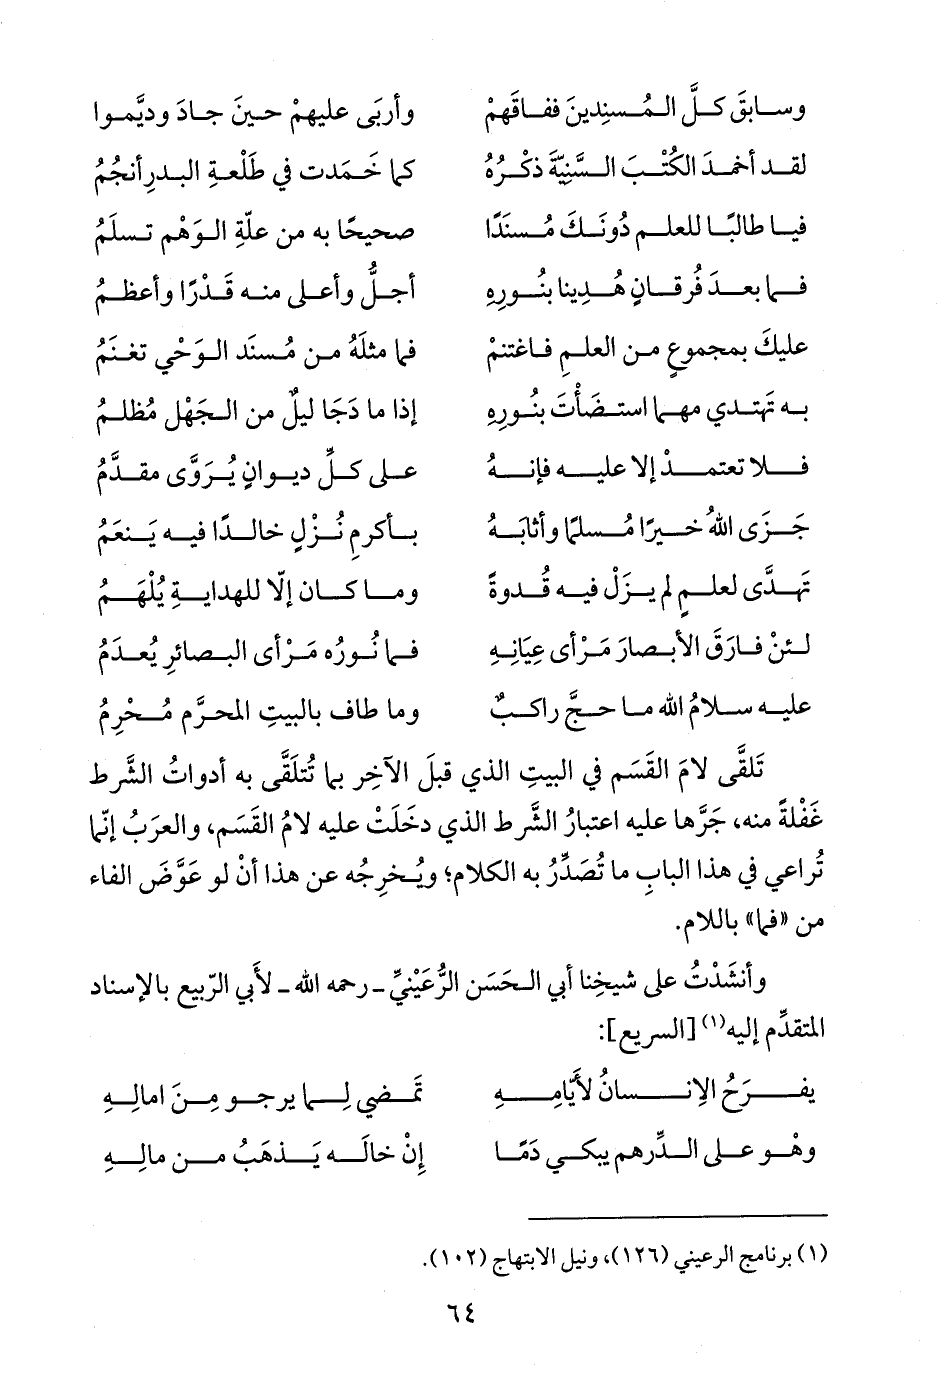 وسابقَ كلَّ المُسنِدينَ ففاقَهمْ وأربَى عليهمْ حينَ جادَ وديَّموا
لقد أخمَدَ الكُتْبَ السَّنِيَّةَ ذكْرُهُ كما خَمَدت في طَلْعةِ البدرِ أنجُمُ
فيا طالبًا للعلم دُونَكَ مُسنَدًا صحيحًا به من علّةِ الوَهْم تسلَمُ
فما بعدَ فُرقانٍ هُدِينا بنُورِهِ أجلُّ وأعلى منه قَدْرًا وأعظمُ
عليكَ بمجموعٍ من العلمِ فاغتنمْ فما مثلَهُ من مُسنَد الوَحْي تغنَمُ
به تهتدي مهما استضَأْتَ بنُورِهِ إذا ما دَجَا ليلٌ من الجَهْل مُظلمُ
فلا تعتمدْ إلا عليه فإنهُ على كلِّ ديوانٍ يُرَوَّى مقدَّمُ
جَزَى اللهُ خيرًا مُسلمًا وأثابَهُ بأكرمِ نُزْلٍ خالدًا فيه يَنعَمُ
تهدَّى لعلمٍ لم يزَلْ فيه قُدوةً وما كان إلّا للهدايةِ يُلْهَمُ
لئنْ فارَقَ الأبصارَ مَرْأى عِيَانِهِ فما نُورُه مَرْأى البصائرِ يُعدَمُ
عليه سلامُ الله ما حجَّ راكبٌ وما طاف بالبيتِ المحرَّم مُحْرِمُ
تَلَقَّى لامَ القَسَم في البيتِ الذي قبلَ الآخِر بما تُتلَقَّى به أدواتُ الشَّرط
غَفْلةً منه، جَرَّها عليه اعتبارُ الشَّرط الذي دخَلَتْ عليه لامُ القَسَم، والعرَبُ إنّما
تُراعي في هذا البابِ ما تُصَدِّرُ به الكلام؛ ويُخرِجُه عن هذا أنْ لو عَوَّضَ الفاء
من «فما» باللام.
وأنشَدْتُ على شيخِنا أبي الحَسَن الرُّعَيْنيِّ ـ رحمه الله ـ لأبي الرّبيع بالإسناد
المتقدِّم إليه(١) [السريع]:
يفرَحُ الإنسانُ لأيّامِهِ تمضي لِما يرجو مِنَ امالِهِ
وهْو على الدِّرهم يبكي دَمًا إنْ خالَه يَذهَبُ من مالِهِ
(١) برنامج الرعيني (١٢٦)، ونيل الابتهاج (١٠٢).
٦٤